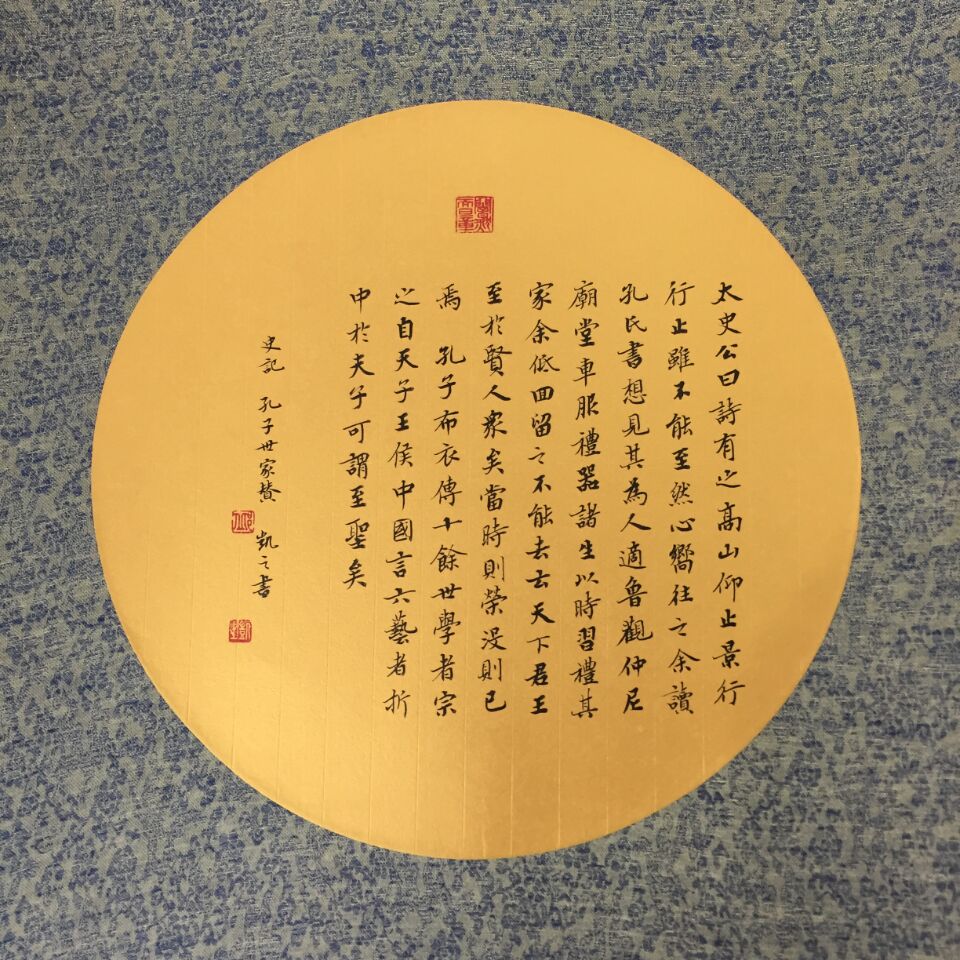 太史公曰詩有之高山仰止景行
行止雖不能至然心嚮往之余讀
孔氏書想見其為人適魯觀仲尼
廟堂車服禮器諸生以時習禮其
家余低回留之不能去云天下君王
至於賢人眾矣當時則榮沒則已
焉 孔子布衣傳十餘世學者宗
之自天子王侯中國言六藝者折
中於夫子可謂至聖矣
史記 孔子世家贊 凱之書